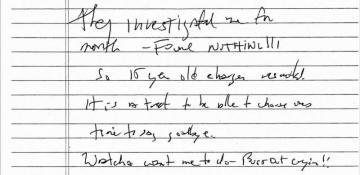 They investigated me for
month – Found NOTHING!!!
So 15 year old charges resulted.
It is a treat to be able to choose ones
time to say goodbye.
Watcha want me to do – Bust out cryin!!